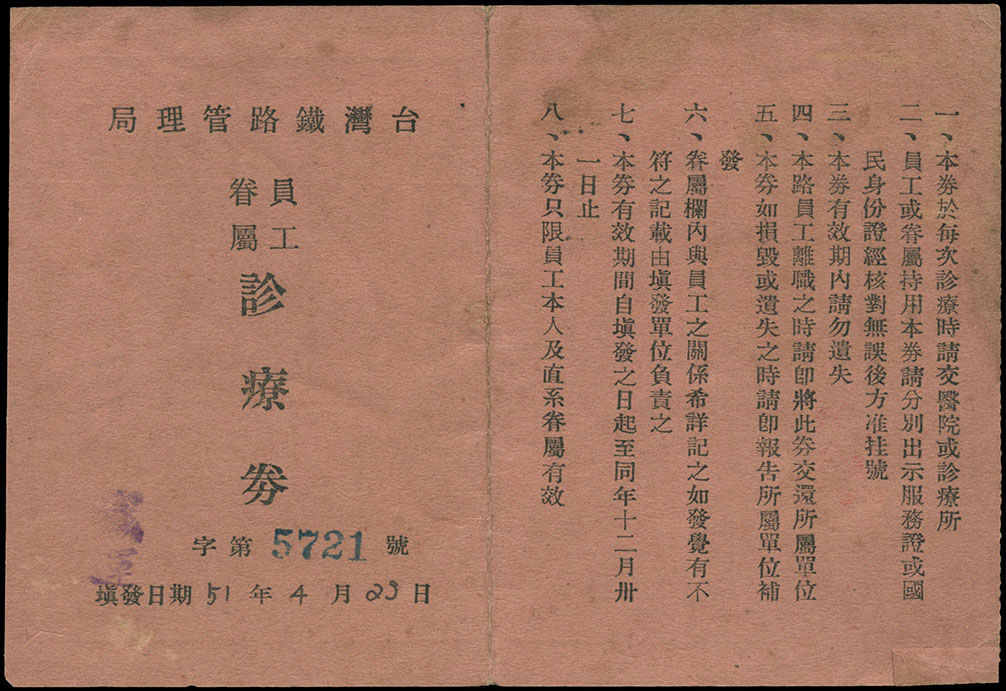 台灣鐵路管理局
員工
眷屬
診療券
字第5721號
填發日期51年4月23日
一、本券於每次診療時請交醫院或診療所
二、員工或眷屬持用本券請分別出示服務證或國
民身份證經核對無誤後方准挂號
三、本券有效期內請勿遺失
四、本路員工離職之時請卽將此券交還所屬單位
五、本券如損毀或遺失之時請卽報告所屬單位補
發
六、眷屬欄內與員工之關係希詳記之如發覺有不
符之記載由塡發單位負責之
七、本券有效期間自塡發之日起至同年十二月卅
一日止
八、本券只限員工本人及直系眷屬有效